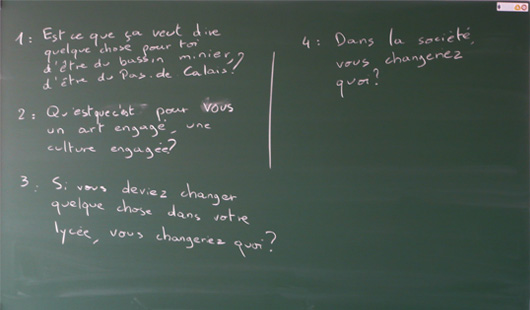 1: Est ce que ça veut dire
quelque chose pour toi
d'être du bassin minier,
d'être du Pas. de Calais?
2: Qu'estquec'est pour vous
un art engagé, une
culture engagée?
3: Si vous deviez changer
quelque chose dans votre
lycée, vous changeriez quoi?
4: Dans la société,
vous changerez
quoi?